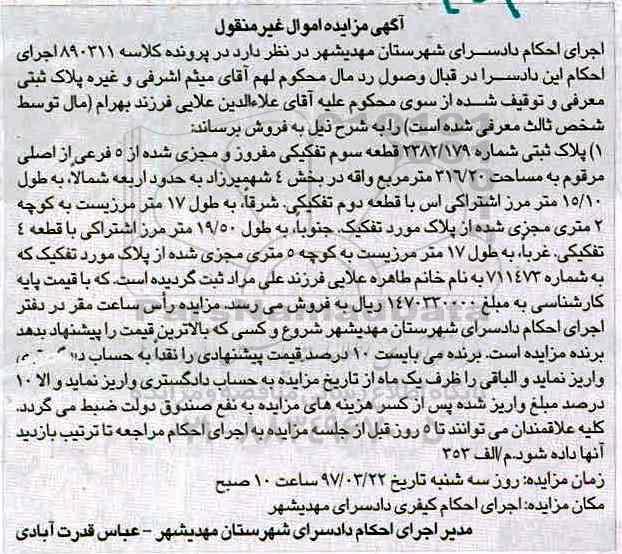 آگهی مزایده اموال غیرمنقول
اجرای احکام دادسرای شهرستان مهدیشهر در نظر دارد در پرونده کلاسه ۸۹۰۳۱۱ اجرای
احکام این دادسرا در قبال وصول رد مال محکوم لهم آقای میثم اشرفی و غیره پلاک ثبتی
معرفی و توقیف شده از سوی محکوم علیه آقای علاءالدین علایی فرزند بهرام (مال توسط
شخص ثالث معرفی شده است) را به شرح ذیل به فروش برساند:
۱) پلاک ثبتی شماره ۲۳۸۲/۱۷۹ قطعه سوم تفکیکی مفروز و مجزی شده از ۵ فرعی از اصلی
مرقوم به مساحت ۳۱۶/۲۰ مترمربع واقه در بخش ۴ شهمیرزاد به حدود اربعه شمالاً، به طول
۱۵/۱۰ متر مرز اشتراکی اس با قطعه دوم تفکیکی. شرقاً، به طول ۱۷ متر مرزیست به کوچه
۲ متری مجزی شده از پلاک مورد تفکیک. جنوباً، به طول ۱۹/۵۰ متر مرز اشتراکی با قطعه ۴
تفکیکی. غربا، به طول ۱۷ متر مرزیست به کوچه ۵ متری مجزی شده از پلاک مورد تفکیک که
به شماره ۷۱۱۴۷۳ به نام خانم طاهره علایی فرزند علی مراد ثبت گردیده است. که با قیمت پایه
کارشناسی به مبلغ ۱۴۷۰۳۳۰۰۰۰ ریال به فروش می رسد. مزایده رأس ساعت مقر در دفتر
اجرای احکام دادسرای شهرستان مهدیشهر شروع و کسی که بالاترین قیمت را پیشنهاد بدهد
برنده مزایده است. برنده می بایست ۱۰ درصد قیمت پیشنهادی را نقداً به حساب
واریز نماید و الباقی را ظرف یک ماه از تاریخ مزایده به حساب دادگستری واریز نماید و الا ۱۰
درصد مبلغ واریز شده پس از کسر هزینه های مزایده به نفع صندوق دولت ضبط می گردد.
کلیه علاقمندان می توانند تا ۵ روز قبل از جلسه مزایده به اجرای احکام مراجعه تا ترتیب بازدید
آنها داده شود.م/الف ۳۵۳
زمان مزایده: روز سه شنبه تاریخ ۹۷/۰۳/۲۲ ساعت ۱۰ صبح
مکان مزایده: اجرای احکام کیفری دادسرای مهدیشهر
مدیر اجرای احکام دادسرای شهرستان مهدیشهر – عباس قدرت آبادی